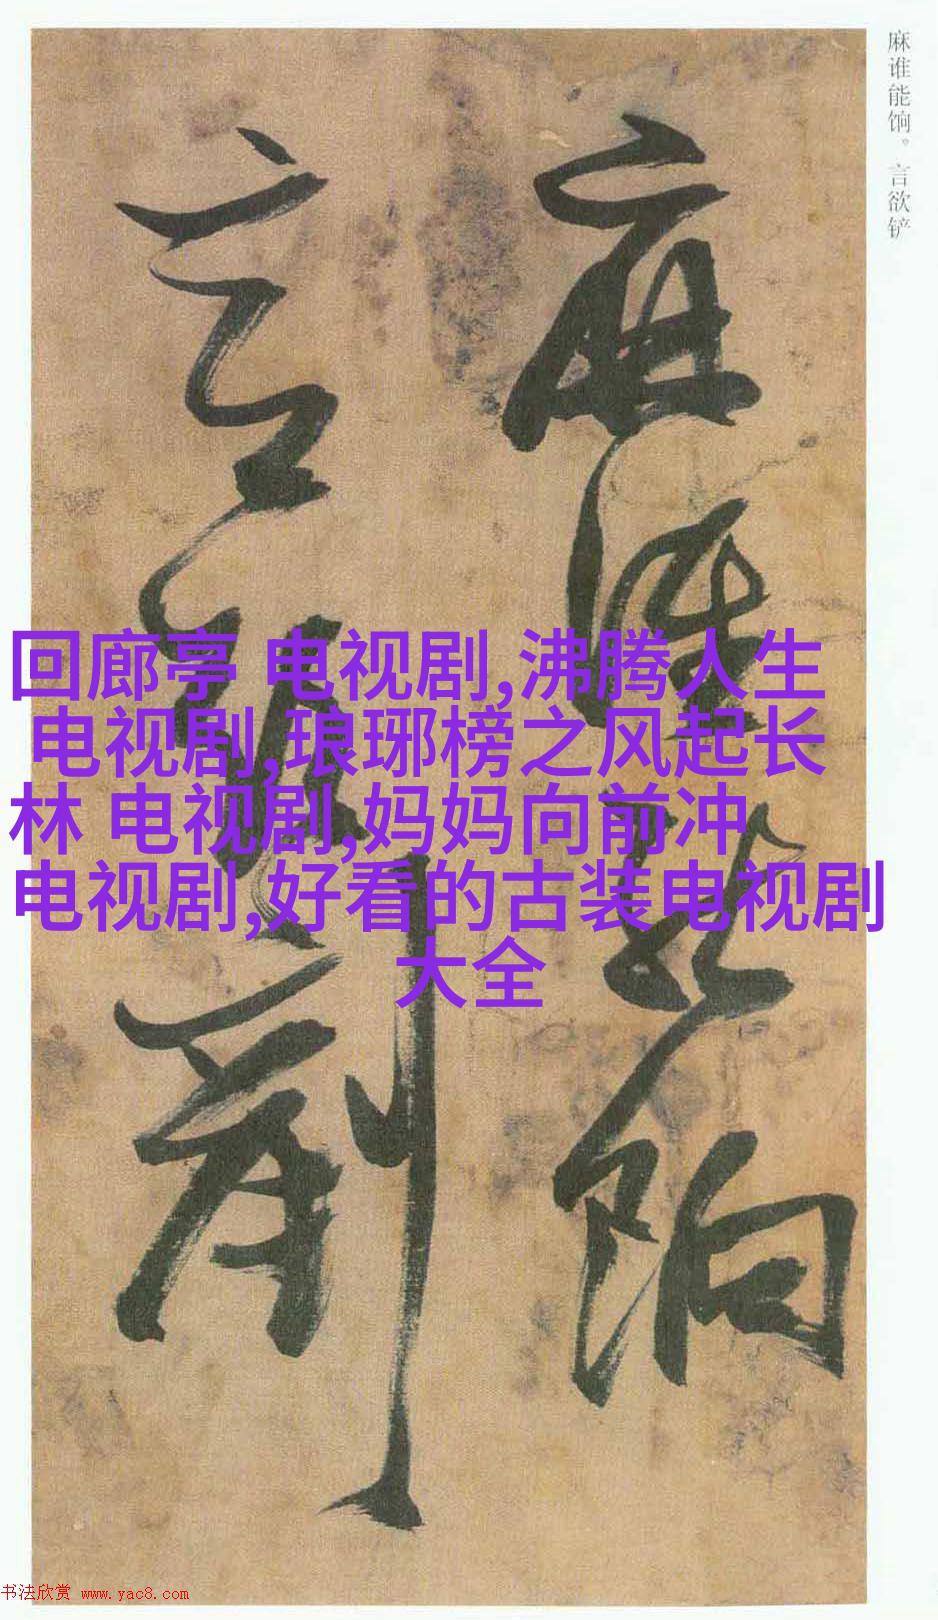 麻谁能饷。言欲铲
麻谁能饷
言欲铲
回廊亭 电视剧,沸腾人生
电视剧,琅琊榜之风起长
林 电视剧,妈妈向前冲
电视剧,好看的古装电视剧
大全
书法欣赏 www.yac8.com